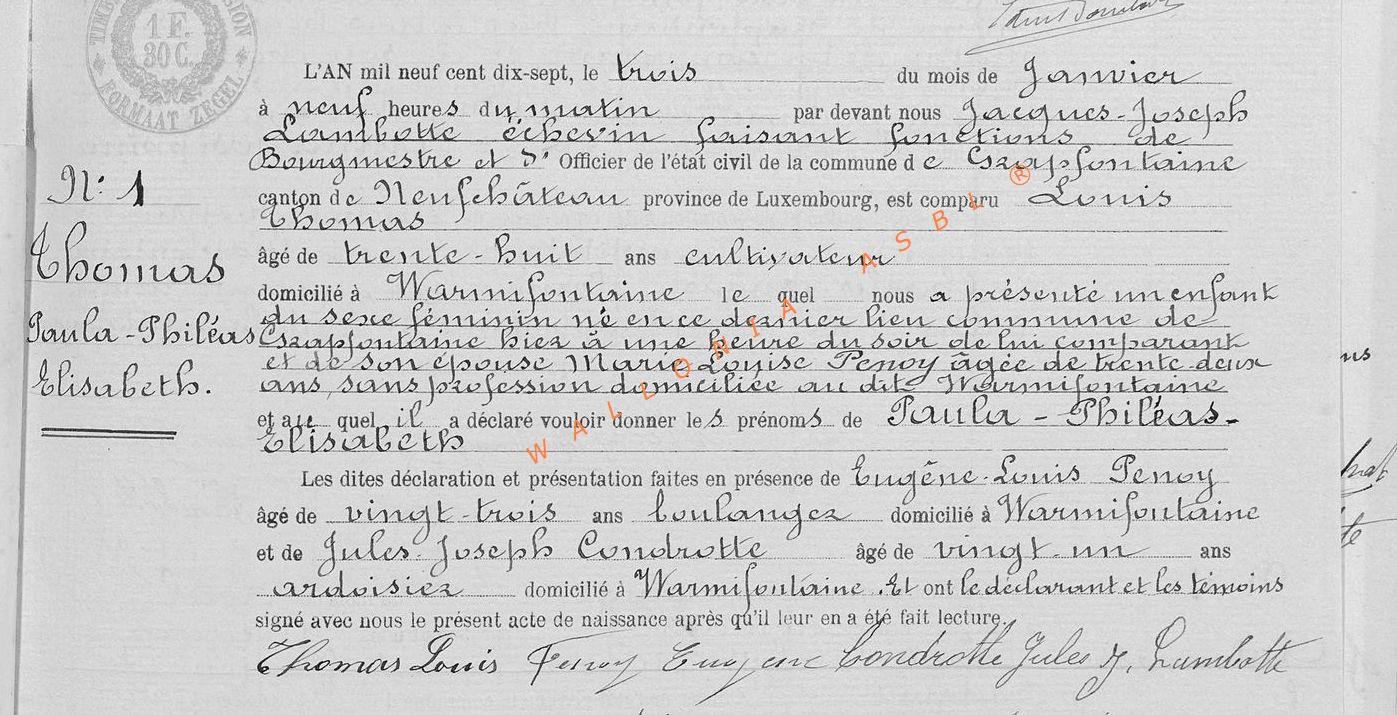 1 F.
30 C.
FORMAAT ZEGEL
L'AN mil neuf cent dix-sept, le trois du mois de Janvier
à neuf heures du matin par devant nous Jacques-Joseph
Lambotte échevin faisant fonctions de
Bourgmestre et d' Officier de l'état civil de la commune de Grapfontaine
canton de Neufchâteau province de Luxembourg, est comparu Louis
Thomas
âgé de trente-huit ans cultivateur
domicilié à Warmifontaine lequel nous a présenté un enfant
du sexe féminin né en ce dernier lieu commune de
Grapfontaine hier à une heure du soir de lui comparant
et de son épouse Marie Louise Penoy âgée de trente-deux
ans, sans profession domiciliée au dit Warmifontaine
et auquel il a déclaré vouloir donner les prénoms de Paula-Philéas-
Elisabeth
Les dites déclaration et présentation faites en présence de Eugêne-Louis Penoy
âgé de vingt-trois ans boulanger domicilié à Warmifontaine
et de Jules-Joseph Condrotte âgé de vingt-un ans
ardoisier domicilié à Warmifontaine. Et ont le déclarant et les témoins
signé avec nous le présent acte de naissance après qu'il leur en a été fait lecture.
Thomas Louis Penoy Eugene Condrotte Jules J. Lambotte
N: 1
Thomas
Paula-Philéas
Elisabeth.
WALLONIA ASBL ®